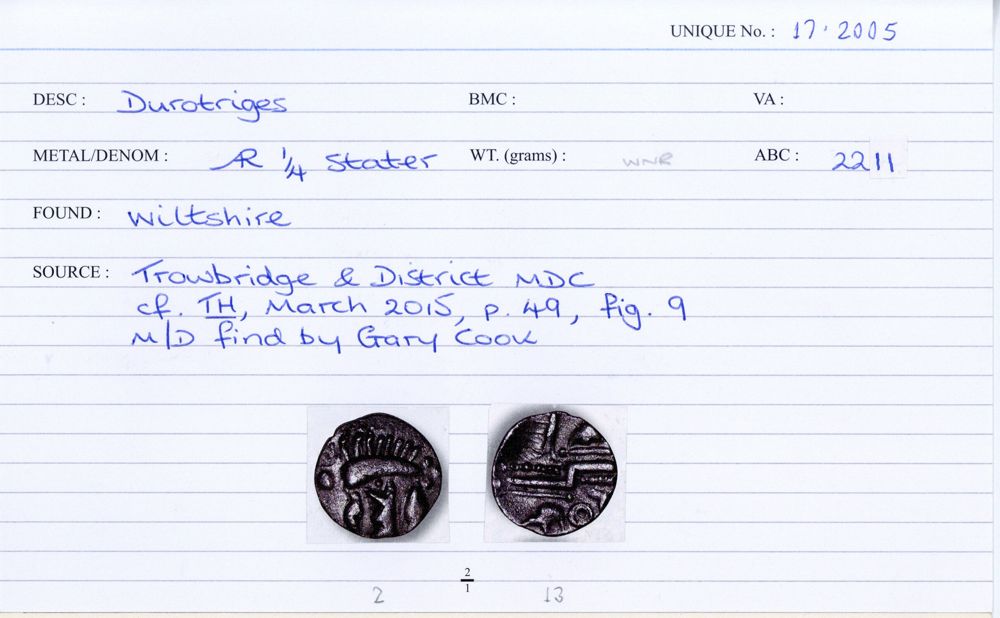 UNIQUE No. : 17.2005
DESC : Durotriges BMC : VA :
METAL/DENOM : AR 1/4 Stater WT. (grams) : WNR ABC : 2211
FOUND : Wiltshire
SOURCE : Trowbridge & District MDC
cf. TH, March 2015, p. 49, fig. 9
M/D find by Gary Cook
2/1
2 13